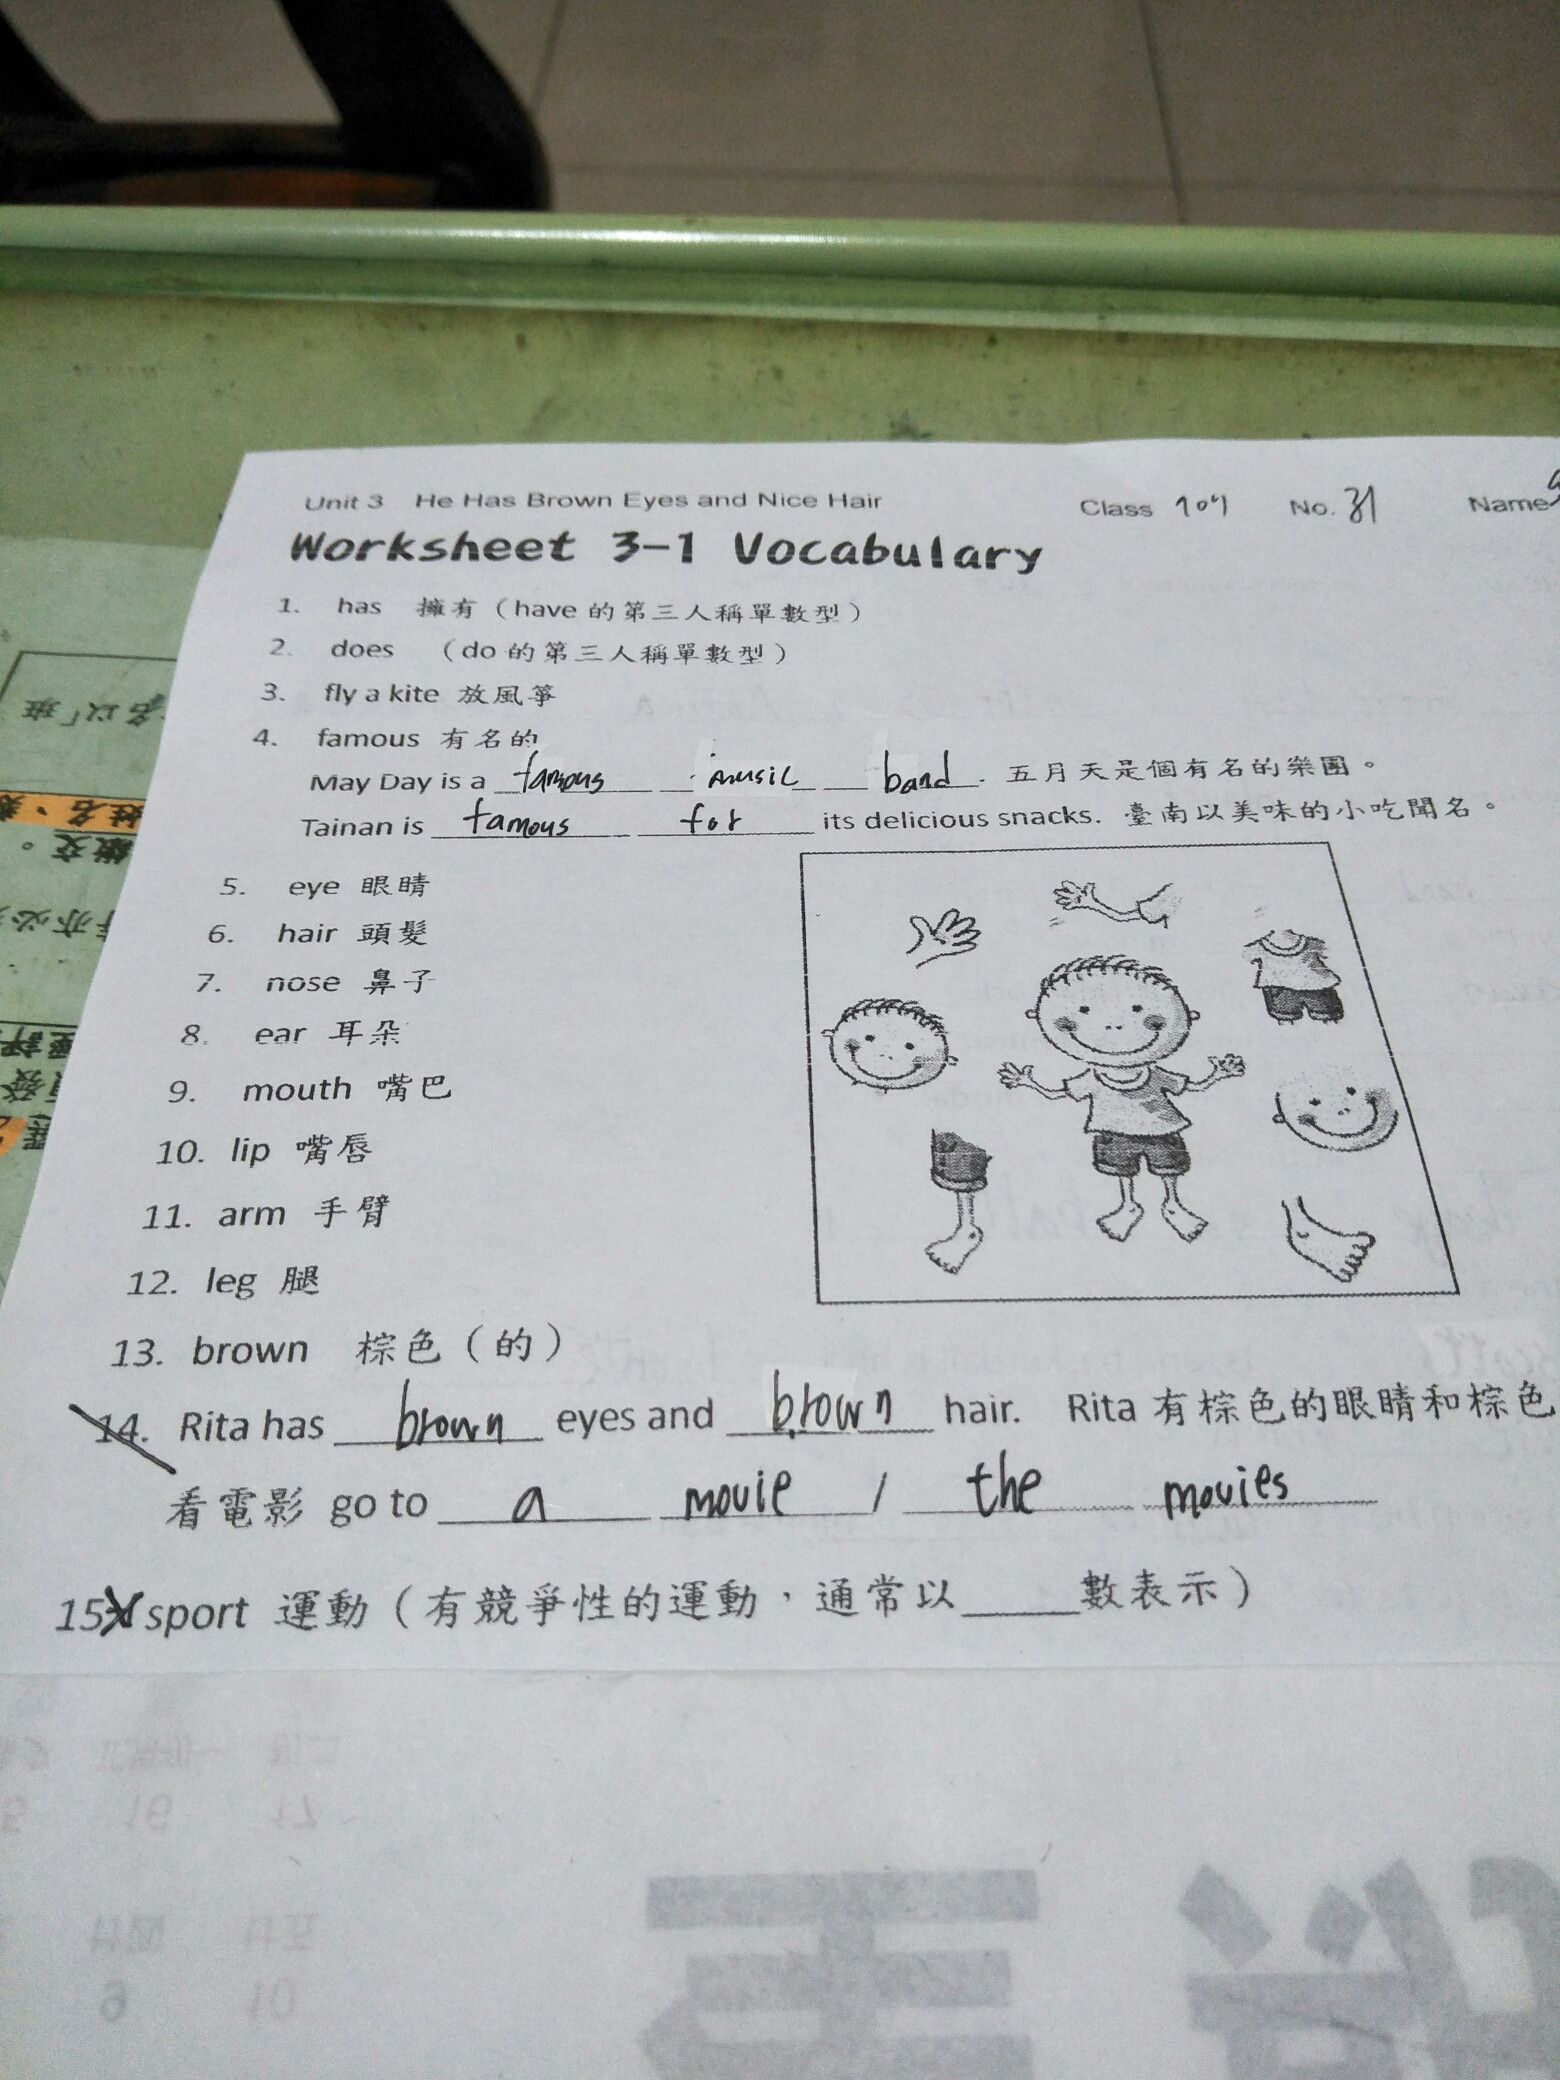 Unit 3 He Has Brown Eyes and Nice Hair Class 707 No. 31 Name
Worksheet 3-1 Vocabulary
1. has 擁有（have 的第三人稱單數型）
2. does （do 的第三人稱單數型）
3. fly a kite 放風箏
4. famous 有名的
May Day is a famous music band. 五月天是個有名的樂團。
Tainan is famous for its delicious snacks. 臺南以美味的小吃聞名。
5. eye 眼睛
6. hair 頭髮
7. nose 鼻子
8. ear 耳朵
9. mouth 嘴巴
10. lip 嘴唇
11. arm 手臂
12. leg 腿
13. brown 棕色（的）
14. Rita has brown eyes and brown hair. Rita 有棕色的眼睛和棕色
看電影 go to a movie / the movies
15. sport 運動（有競爭性的運動，通常以_____數表示）